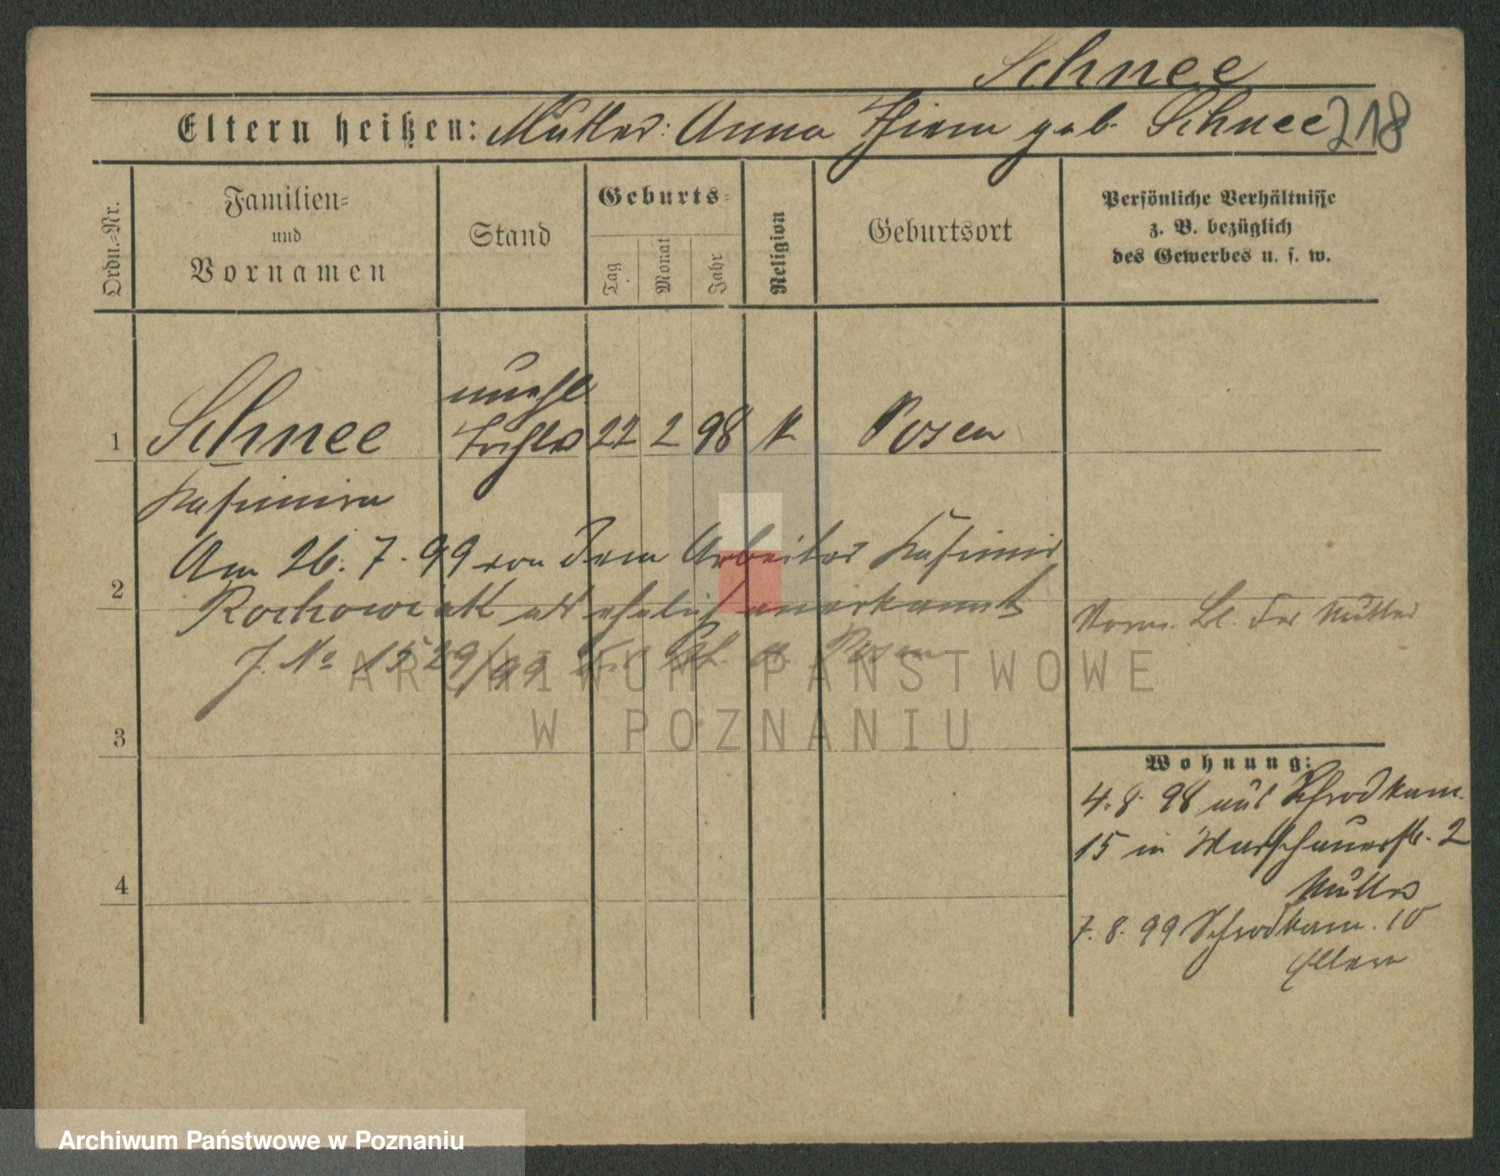 Schnee
Eltern heißen: Mutter: Anna Thiem geb. Schnee 218
Ordn.-Nr.
Familien-
und
Vornamen
Stand
Geburts-
Tag
Monat
Jahr
Religion
Geburtsort
Persönliche Verhältnisse
z. B. bezüglich
des Gewerbes u. s. w.
unehl
1 Schnee Tochter 22 2 98 k Posen
Kasimira
Am 26. 7. 99 von dem Arbeiter Kasimir
2
Rochowiak als ehelich anerkannt
J. No 1529/99 Posen
Vorm. Bl. der Mutter
ARCHIWUM PAŃSTWOWE
W POZNANIU
3
Wohnung:
4. 8. 98 aus Schrodkam.
15 in Warschauerstr. 2
Mutter
4
7. 8. 99 Schrodkam. 10
Eltern
Archiwum Państwowe w Poznaniu